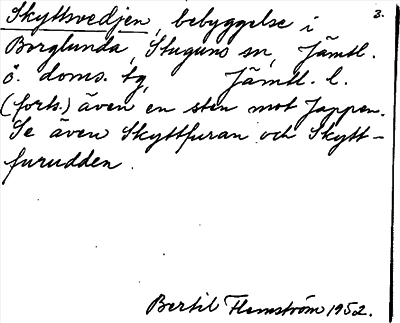 Skyttsvedjen, bebyggelse i 3.
Borglunda, Stuguns sn, Jämtl.
ö. doms. tg, Jämtl. l.
(forts.) även en sten mot Joppen.
Se även Skyttfuran och Skytt-
furudden.
Bertil Flemström 1952.